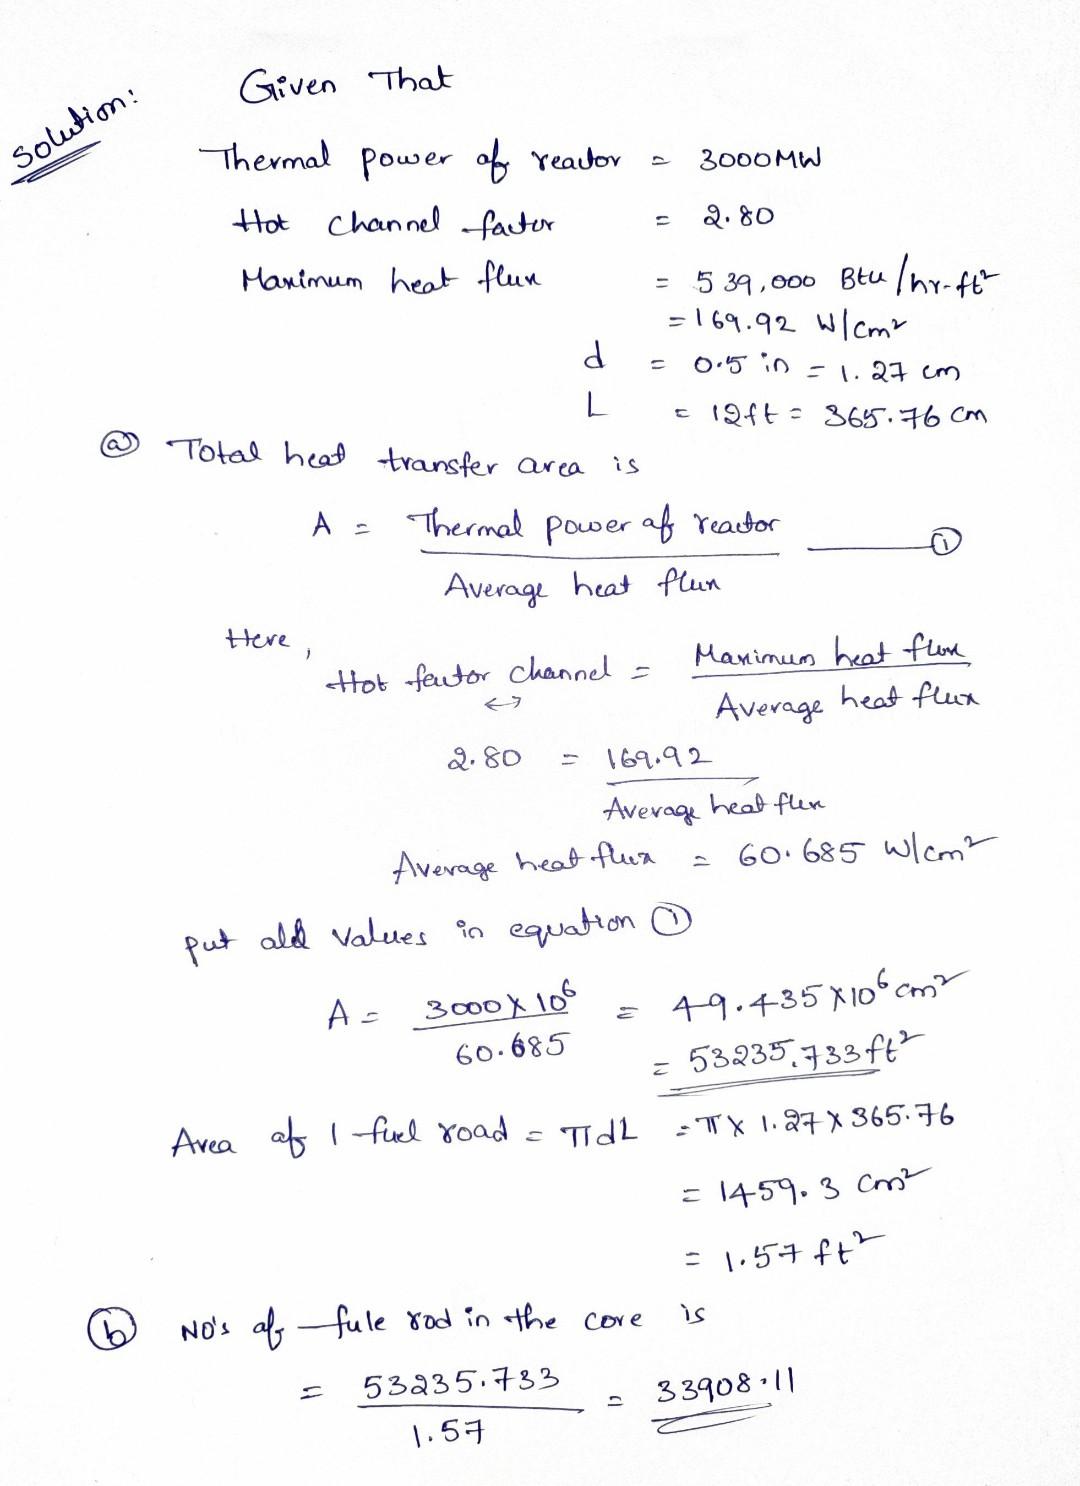 Solution:
Given That
Thermal power of reactor = 3000MW
Hot channel factor = 2.80
Maximum heat flux = 539,000 Btu/hr-ft²
= 169.92 W/cm²
d = 0.5 in = 1.27 cm
L = 12ft = 365.76 cm
(a) Total heat transfer area is
A = Thermal power of reactor ——— (1)
Average heat flux
Here,
Hot factor channel = Maximum heat flux
↔ Average heat flux
2.80 = 169.92
Average heat flux
Average heat flux = 60.685 W/cm²
put all values in equation (1)
A = 3000 X 10⁶ = 49.435 X10⁶ cm²
60.685
= 53235.733 ft²
Area of 1 fuel road = πdL = π X 1.27 X 365.76
= 1459.3 cm²
= 1.57 ft²
(b) NO's of fule rod in the core is
= 53235.733 = 33908.11
1.57